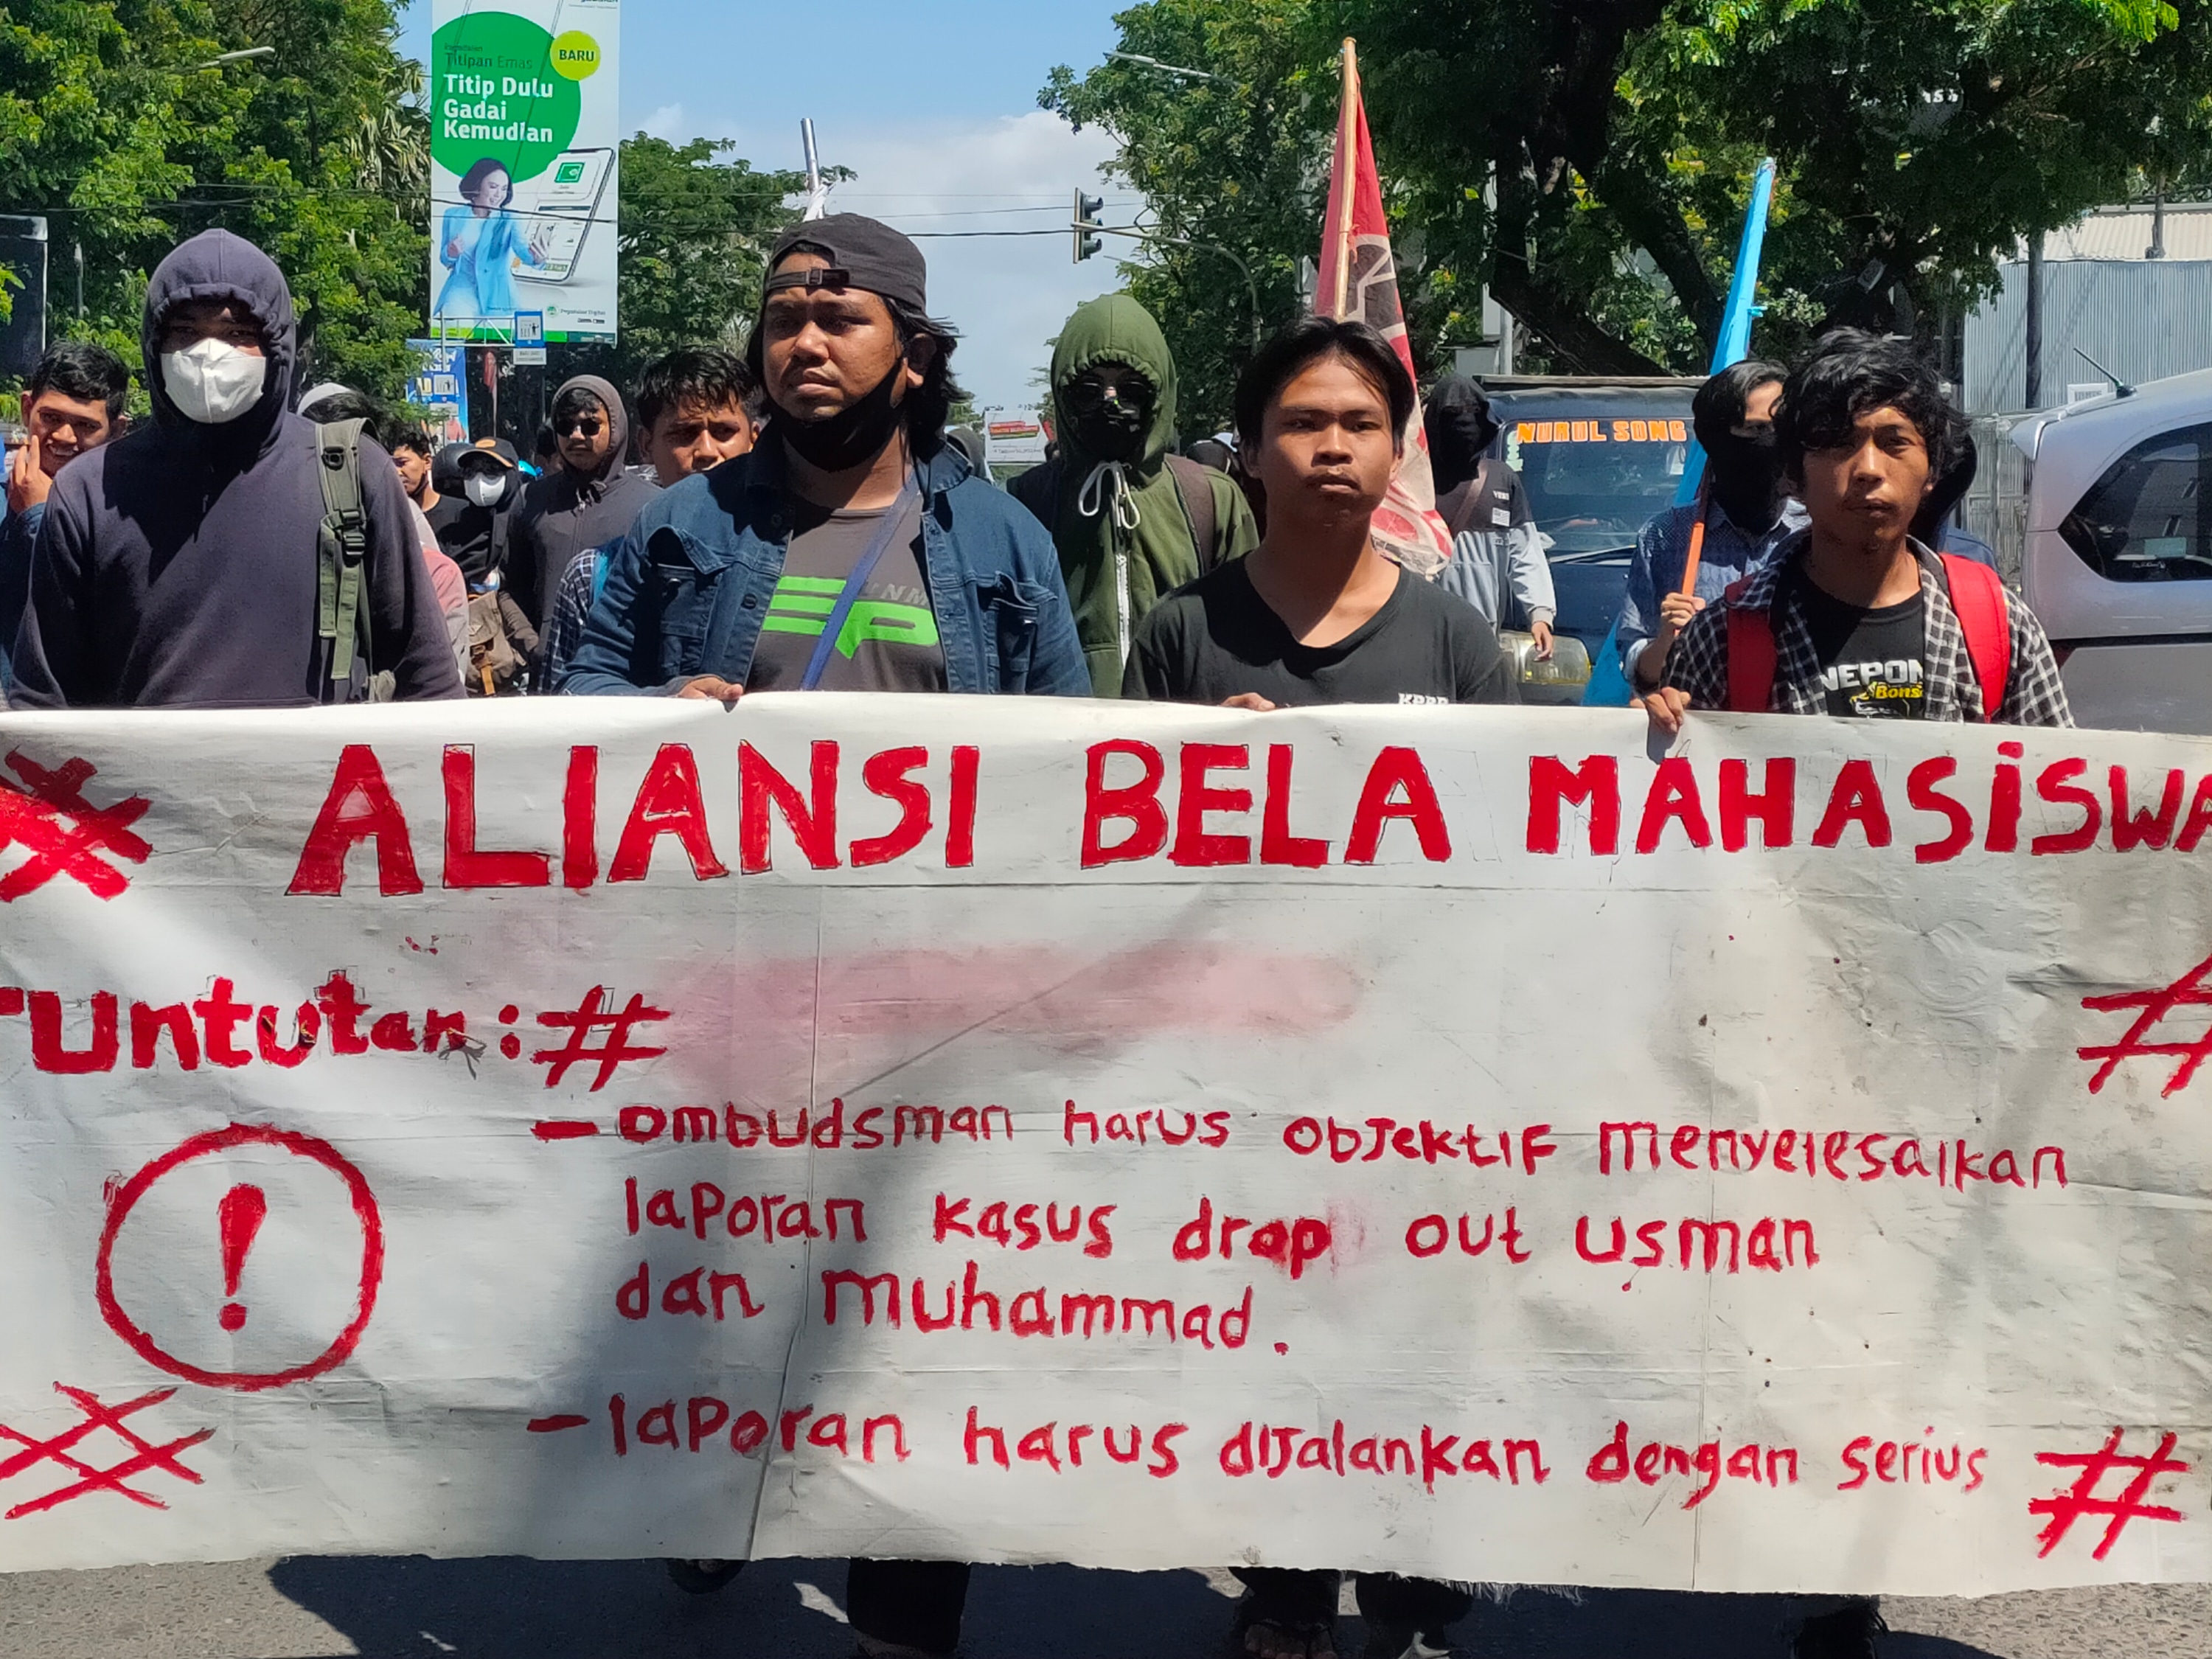 Titipan Emas
BARU
Titip Dulu
Gadai
Kemudian
Pegadaian Digital
NURUL SONG
UNM
EP
KPPP
NEPON
Bons
ALIANSI BELA MAHASISWA
Tuntutan : #
#
- ombudsman harus objektif menyelesaikan
laporan kasus drop out usman
dan muhammad.
!
- laporan harus dijalankan dengan serius #